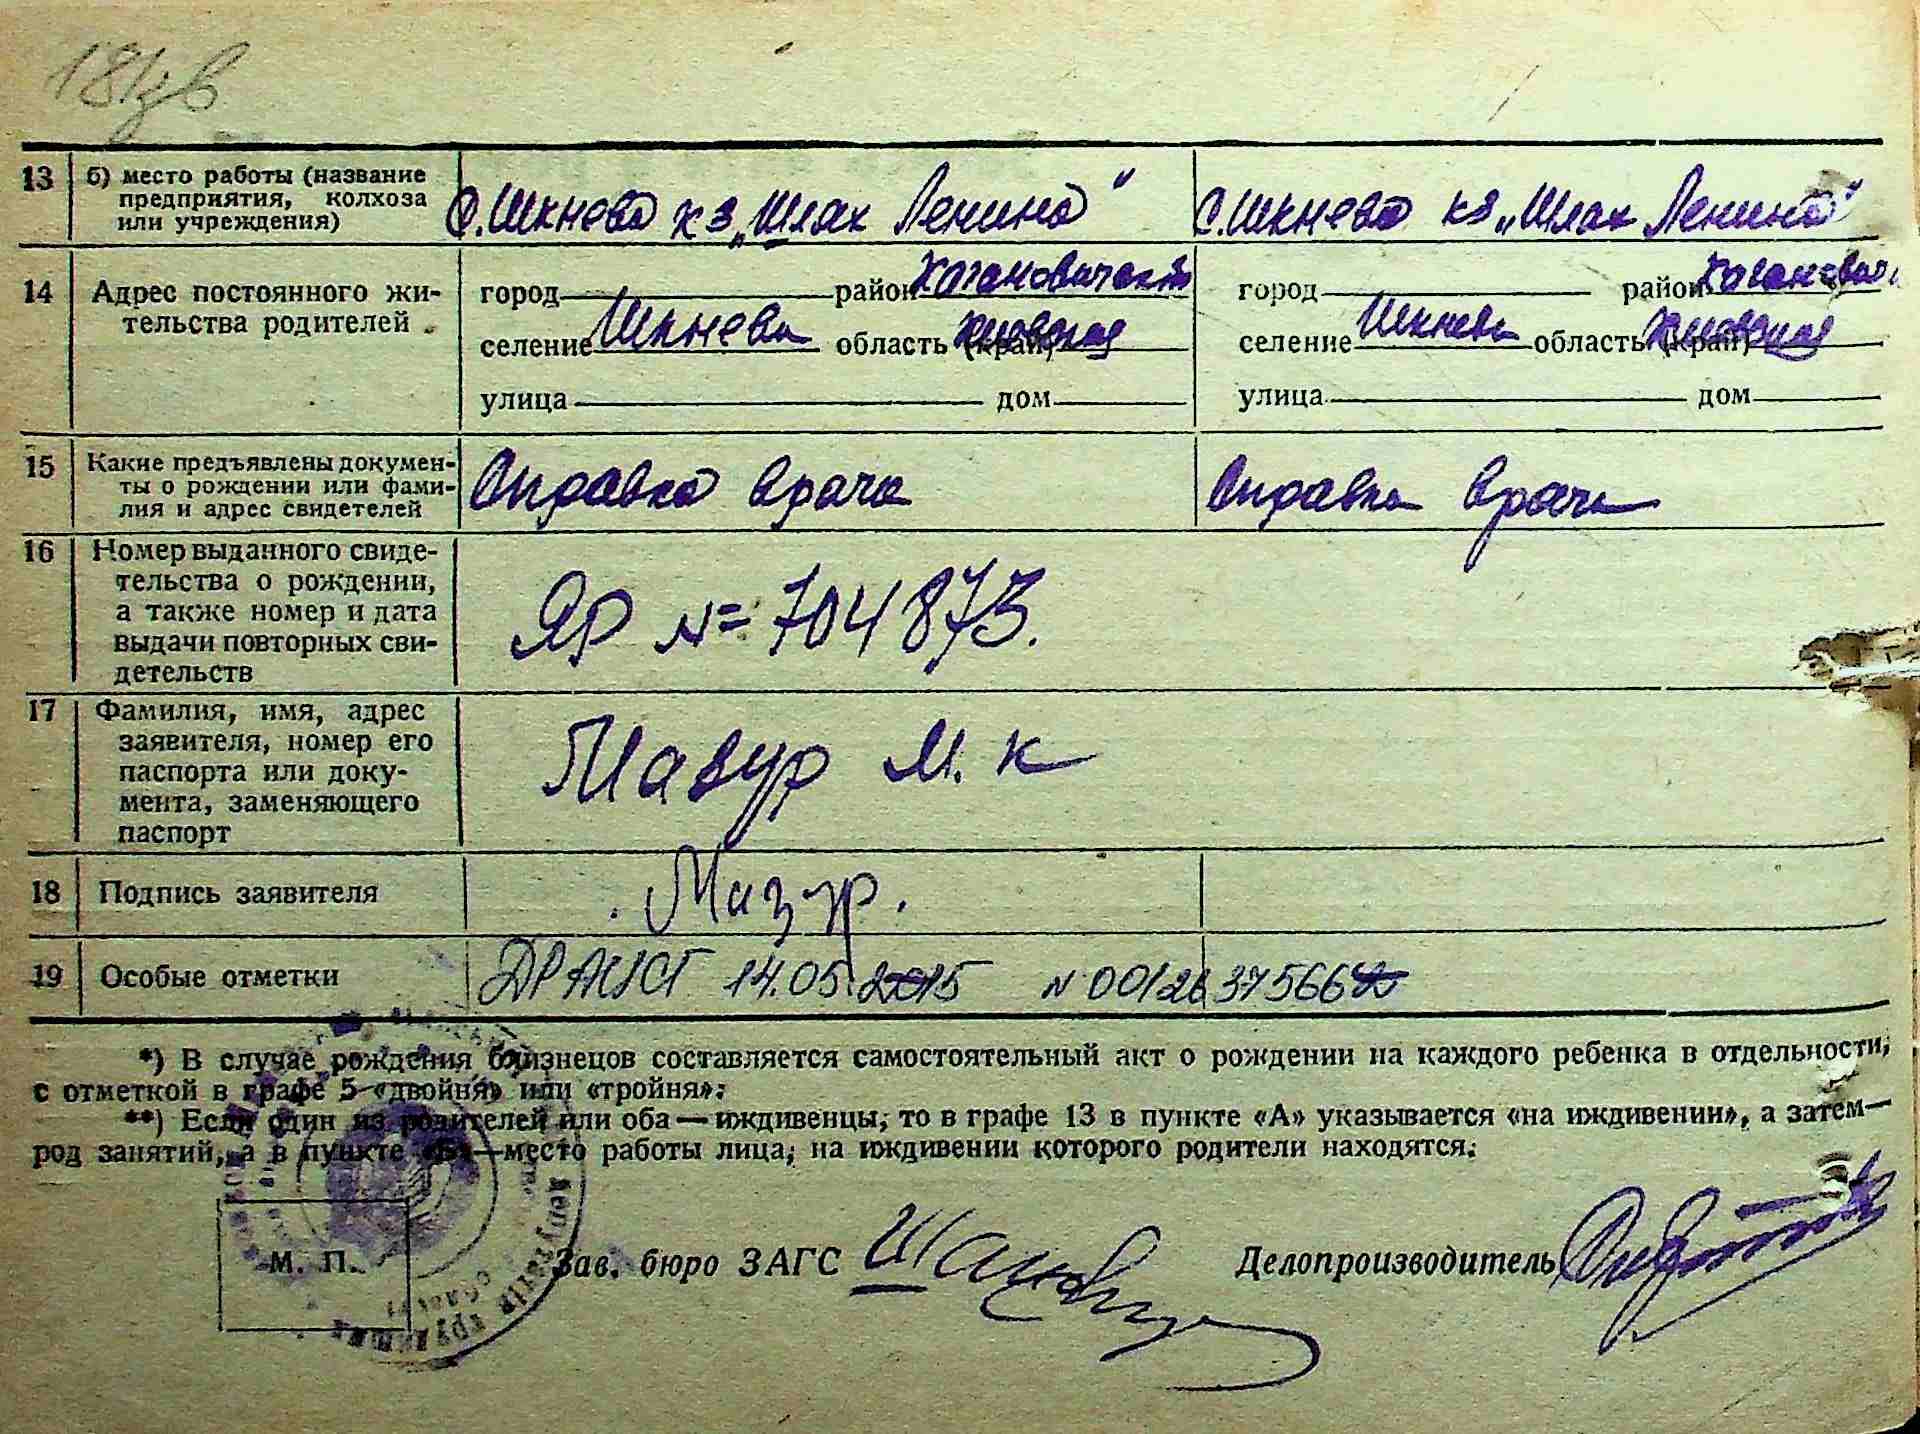 13 б) место работы (название предприятия, колхоза или учреждения)
с. Шкнева кз „Шлях Ленина"
с. Шкнева кз „Шлях Ленина"
14 Адрес постоянного жительства родителей
город район Кагановический
селение Шкнева область (край) Киевская
улица дом
город район
селение Шкнева область (край) Киевская
улица дом
15 Какие предъявлены документы о рождении или фамилия и адрес свидетелей
Справка врача
Справка врача
16 Номер выданного свидетельства о рождении, а также номер и дата выдачи повторных свидетельств
ЯР № 704873.
17 Фамилия, имя, адрес заявителя, номер его паспорта или документа, заменяющего паспорт
Мазур М. К
18 Подпись заявителя
Мазур.
19 Особые отметки
ДРАЦСГ 14.05.2015 N 0012637566
*) В случае рождения близнецов составляется самостоятельный акт о рождении на каждого ребенка в отдельности,
с отметкой в графе 5 «двойня» или «тройня»:
**) Если один из родителей или оба — иждивенцы, то в графе 13 в пункте «А» указывается «на иждивении», а затем—
род занятий, а в пункте «Б»—место работы лица, на иждивении которого родители находятся.
М. П.
Зав. бюро ЗАГС
Делопроизводитель